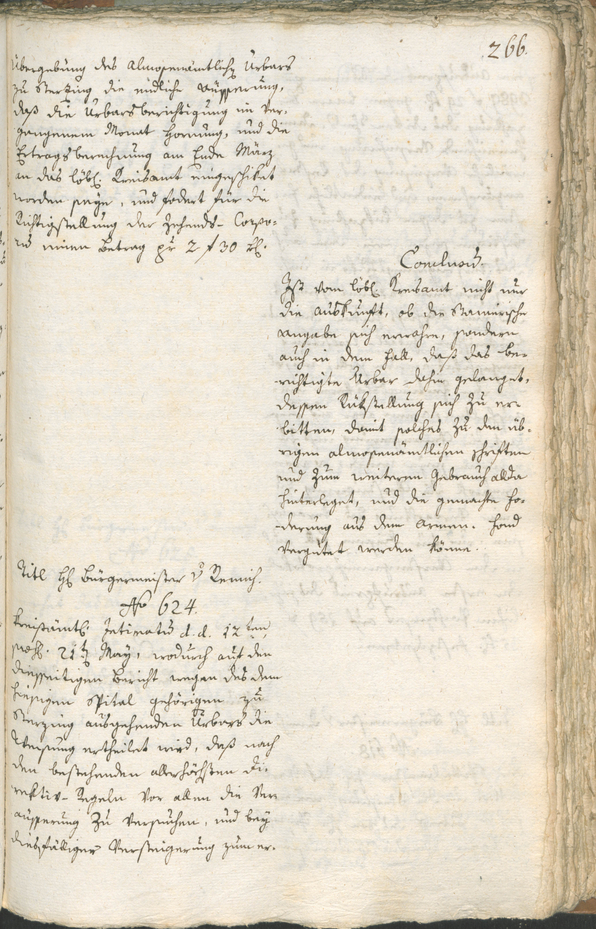 266.
Übergebung des Almosenämtlichen Urbars
zu Sterzing die endliche Äusserung,
daß die Urbarsberichtigung im ver-
gangenen Monat Hornung, und die
Ertragsberechnung am Ende März
an das löbl. Kreisamt eingeschicket
worden seye, und fodert für die
Richtigstellung der Zehends- Corpo-
rum einen Betrag pr 2 f 30 kr.
Conclusum.
Ist vom löbl. Kreisamt nicht nur
die Auskunft, ob die
Angabe sich erwahre, sondern
auch in dem Fall, daß das be-
richtigte Urbar dahin gelanget,
dessen Rückstellung sich zu er-
bitten, damit solches zu den üb-
rigen almosenämtlichen Schriften
und zum weiteren Gebrauch allda
hinterleget, und die gemachte Fo-
derung aus dem Armen- Fond
vergütet werden könne.
Titl H Bürgermeister v Remich.
No 624.
Kreisämtl. Intimatum d.d. 12ten
21ten May, wodurch auf den
diesseitigen Bericht wegen des dem
hiesigen Spital gehörigen zu
Sterzing ausgehenden Urbars die
Weisung ertheilet wird, daß nach
den bestehenden allerhöchsten Di-
rektiv-Regeln vor allen die Ver-
äusserung zu versuchen, und bey
diesfälliger Versteigerung zum er-